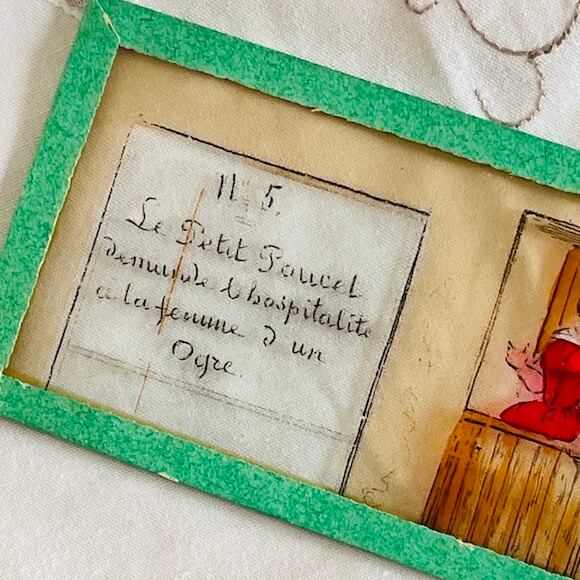 No 5.
Le Petit Poucet
demande l'hospitalité
à la femme d'un
Ogre.